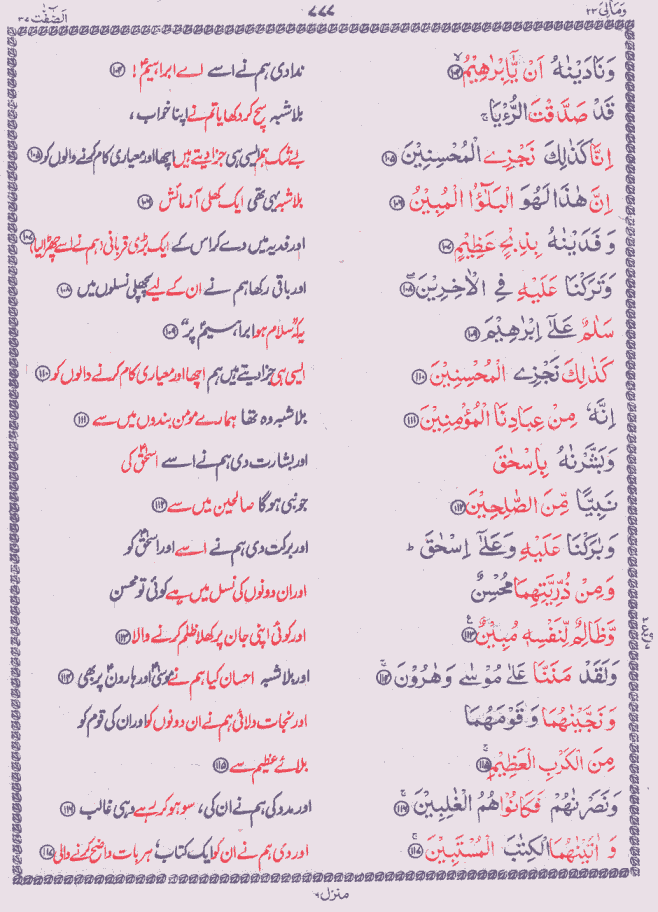 وَمَالِیَ ٢٣ ٧٧٧ اَلصّٰٓفّٰت ٣٧
وَنَادَيْنٰهُ اَنْ يّٰٓاِبْرٰهِيْمُ ۙ ﴿۱۰۴﴾ ندا دی ہم نے اسے اے ابراہیمؑ! ﴿۱۰۴﴾
قَدْ صَدَّقْتَ الرُّءْيَا ۚ بلاشبہ سچ کر دکھایا تم نے اپنا خواب،
اِنَّا كَذٰلِكَ نَجْزِے الْمُحْسِنِيْنَ ﴿۱۰۵﴾ بے شک ہم ایسی ہی جزا دیتے ہیں اچھا اور معیاری کام کرنے والوں کو ﴿۱۰۵﴾
اِنَّ هٰذَا لَهُوَ الْبَلٰٓؤُا الْمُبِيْنُ ﴿۱۰۶﴾ بلاشبہ یہی تھی ایک کھلی آزمائش ﴿۱۰۶﴾
وَ فَدَيْنٰهُ بِذِبْحٍ عَظِيْمٍ ﴿۱۰۷﴾ اور فدیہ میں دے کر اس کے ایک بڑی قربانی (ہم نے اسے چھڑا لیا) ﴿۱۰۷﴾
وَتَرَكْنَا عَلَيْهِ فِے الْاٰخِرِيْنَ ﴿۱۰۸﴾ اور باقی رکھا ہم نے ان کے لیے پچھلی نسلوں میں ﴿۱۰۸﴾
سَلٰمٌ عَلٰٓے اِبْرٰهِيْمَ ﴿۱۰۹﴾ یہ کہ "سلام ہو ابراہیمؑ پر" ﴿۱۰۹﴾
كَذٰلِكَ نَجْزِے الْمُحْسِنِيْنَ ﴿۱۱۰﴾ ایسی ہی جزا دیتے ہیں ہم اچھا اور معیاری کام کرنے والوں کو ﴿۱۱۰﴾
اِنَّهٗ مِنْ عِبَادِنَا الْمُؤْمِنِيْنَ ﴿۱۱۱﴾ بلاشبہ وہ تھا ہمارے مومن بندوں میں سے ﴿۱۱۱﴾
وَبَشَّرْنٰهُ بِاِسْحٰقَ اور بشارت دی ہم نے اسے اسحٰقؑ کی
نَبِيًّا مِّنَ الصّٰلِحِيْنَ ﴿۱۱۲﴾ جو نبی ہوگا صالحین میں سے ﴿۱۱۲﴾
وَبٰرَكْنَا عَلَيْهِ وَعَلٰٓے اِسْحٰقَ ؕ اور برکت دی ہم نے اسے اور اسحٰقؑ کو
وَمِنْ ذُرِّيَّتِهِمَا مُحْسِنٌ اور ان دونوں کی نسل میں ہے کوئی تو محسن
وَّظَالِمٌ لِّنَفْسِهٖ مُبِيْنٌ ﴿۱۱۳﴾ اور کوئی اپنی جان پر کھلا ظلم کرنے والا ﴿۱۱۳﴾
وَلَقَدْ مَنَنَّا عَلٰے مُوْسٰے وَهٰرُوْنَ ۚ ﴿۱۱۴﴾ اور بلاشبہ احسان کیا ہم نے موسیٰؑ اور ہارونؑ پر بھی ﴿۱۱۴﴾
وَنَجَّيْنٰهُمَا وَ قَوْمَهُمَا اور نجات دلائی ہم نے ان دونوں کو اور ان کی قوم کو
مِنَ الْكَرْبِ الْعَظِيْمِ ۚ ﴿۱۱۵﴾ بلائے عظیم سے ﴿۱۱۵﴾
وَنَصَرْنٰهُمْ فَكَانُوْا هُمُ الْغٰلِبِيْنَ ۚ ﴿۱۱۶﴾ اور مدد کی ہم نے ان کی، سو ہو کر رہے وہی غالب ﴿۱۱۶﴾
وَ اٰتَيْنٰهُمَا الْكِتٰبَ الْمُسْتَبِيْنَ ۚ ﴿۱۱۷﴾ اور دی ہم نے ان کو ایک کتاب، ہر بات واضح کرنے والی ﴿۱۱۷﴾
منزل ٦